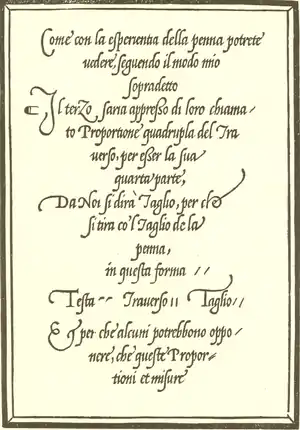 Come con la esperientia della penna potrete
vedere, seguendo il modo mio
sopradetto
Il terzo saria appresso di loro chiama-
to Proportione quadrupla del Tra
verso, per esser la sua
quarta parte,
Da Noi si dirà Taglio, per che
si tira co'l Taglio de la
penna,
in questa forma //
Testa -- Traverso ıı Taglio //
Et per che alcuni potrebbono oppo-
nere, che queste Propor-
tioni et misure